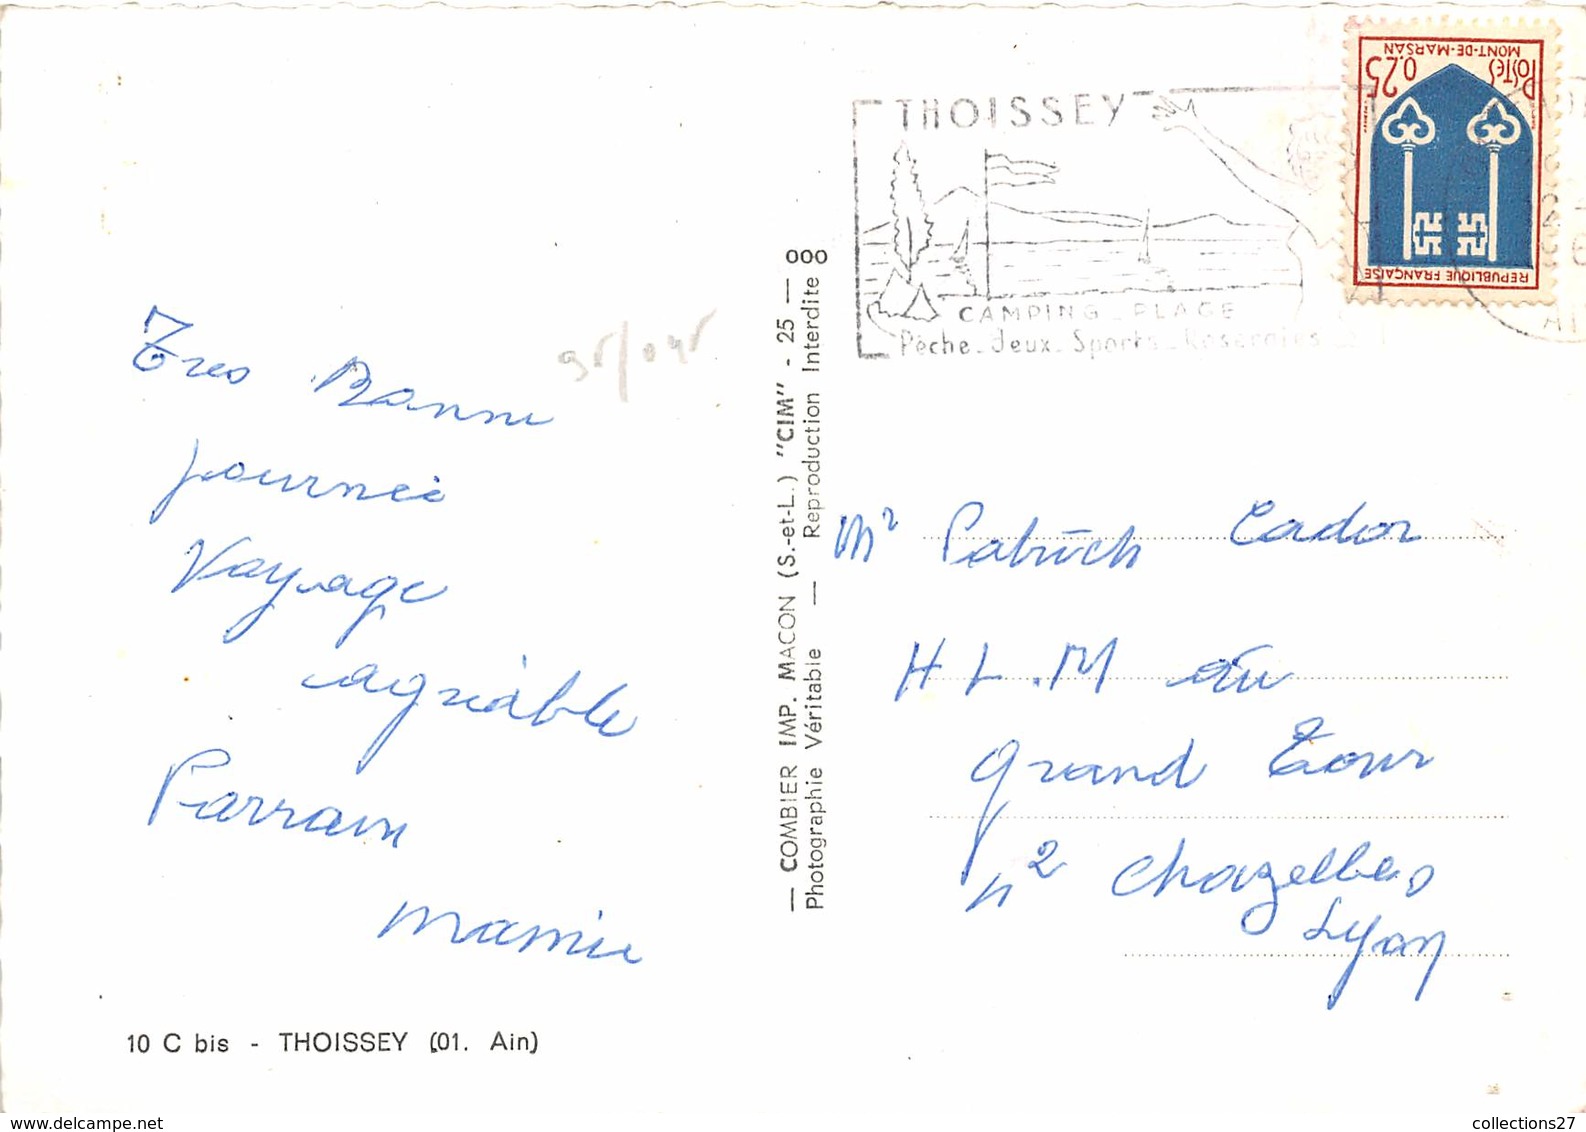 THOISSEY
CAMPING - PLAGE
Pêche - Jeux - Sports - Roseraies
POSTES 0,25
MONT-DE-MARSAN
REPUBLIQUE FRANÇAISE
Tres Bonne
journeé
Voyage
agréable
Parrain
mamie
10 C bis - THOISSEY (01. Ain)
— COMBIER IMP. MACON (S.-et-L.) "CIM" - 25 — 000
Photographie Véritable — Reproduction Interdite
Mr Patrick Cador
H L.M du
grand Tour
n 2 Chazelles
Lyon
collections27